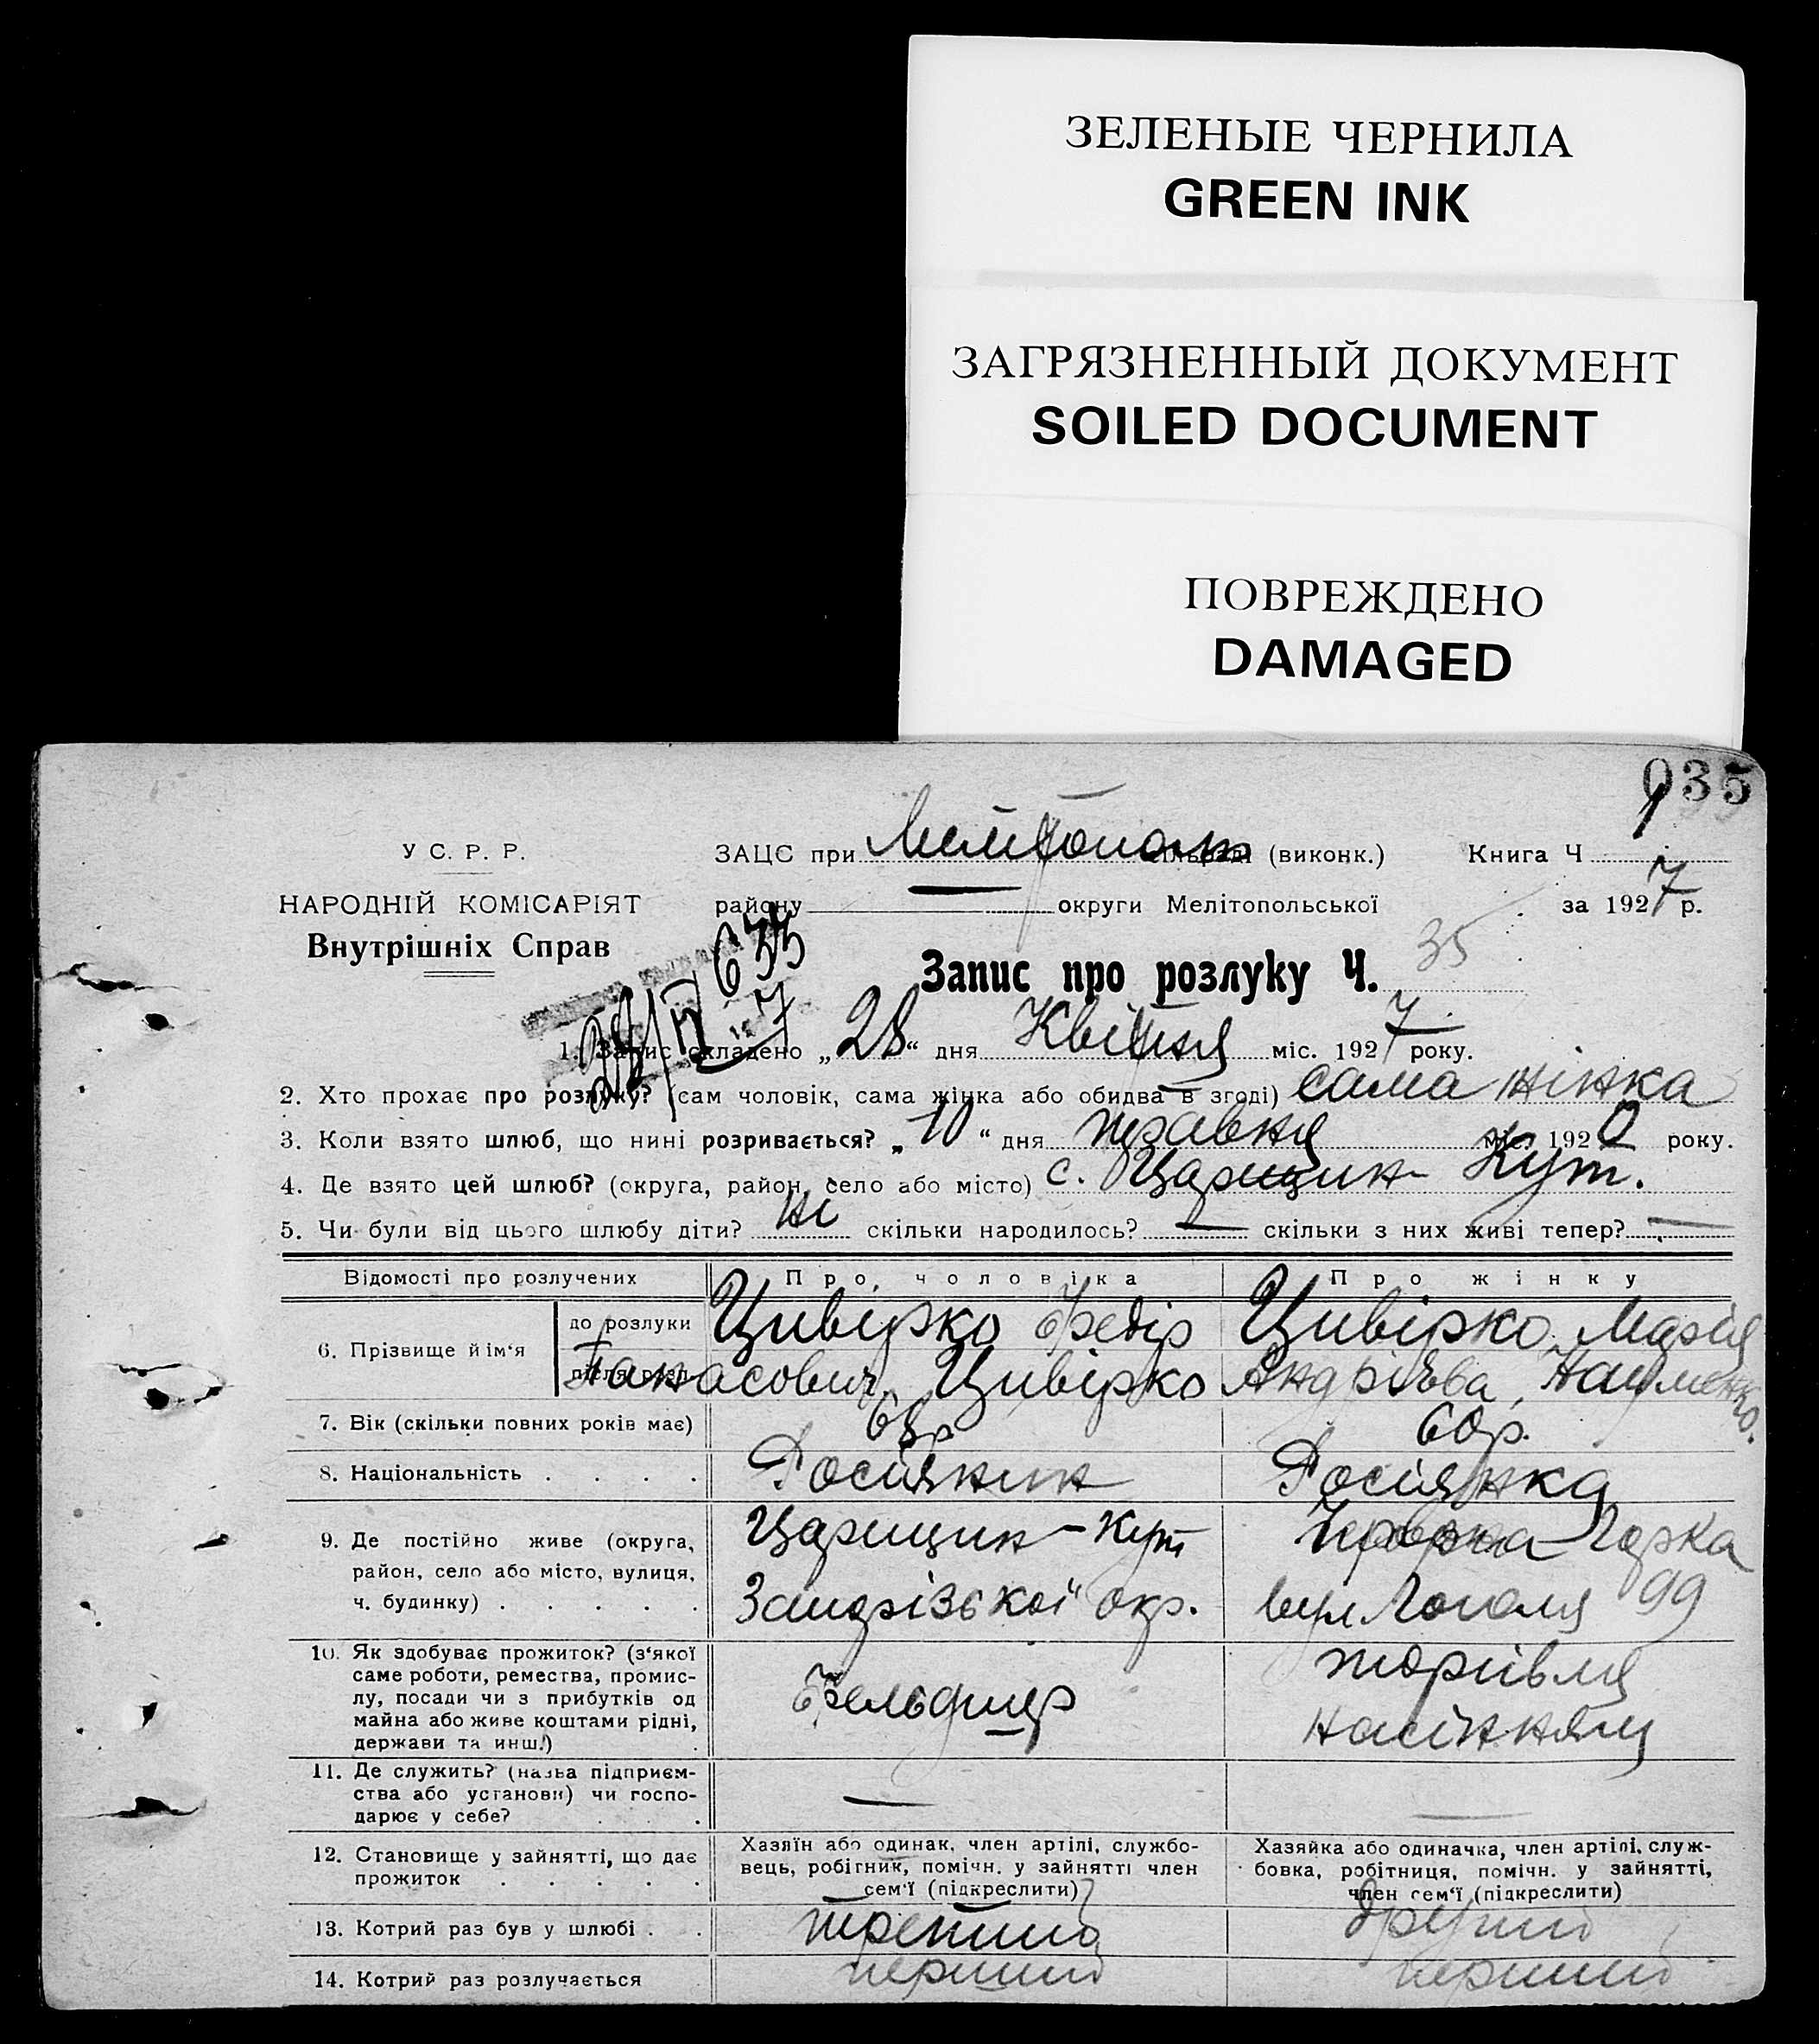 ЗЕЛЕНЫЕ ЧЕРНИЛА
GREEN INK
ЗАГРЯЗНЕННЫЙ ДОКУМЕНТ
SOILED DOCUMENT
ПОВРЕЖДЕНО
DAMAGED
035
У С. Р. Р.
НАРОДНІЙ КОМІСАРІЯТ
Внутрішніх Справ
ЗАЦС при Мелітополь (виконк.) Книга Ч 1
району — округи Мелітопольської за 1927 р.
633
Запис про розлуку Ч. 35
28/IV 7
1. Запис складено „28“ дня Квітня міс. 1927 року.
2. Хто прохає про розлуку? (сам чоловік, сама жінка або обидва в згоді) сама жінка
3. Коли взято шлюб, що нині розривається? „10“ дня травня міс. 1920 року.
4. Де взято цей шлюб? (округа, район, село або місто) с. Царицин Кут.
5. Чи були від цього шлюбу діти? ні скільки народилось? — скільки з них живі тепер? —
Відомості про розлучених Про чоловіка Про жінку
6. Прізвище й ім‘я до розлуки Цивірко Федір Цивірко Марія
після розл. Танасович, Цивірко Андрієва, Науменко.
7. Вік (скільки повних років має) 68р 60р.
8. Національність . . . . Росіянин Росіянка
9. Де постійно живе (округа, район, село або місто, вулиця, ч. будинку) . . . . .
Царицин-Кут
Запорізької окр.
Червона Горка
вул Гоголя 99
10. Як здобуває прожиток? (з‘якої саме роботи, ремества, промислу, посади чи з прибутків од майна або живе коштами рідні, держави та инш.)
Фельдшер
торгівля
насінням
11. Де служить? (назва підприємства або установи) чи господарює у себе? . . .
—
—
12. Становище у зайнятті, що дає прожиток . . . . .
Хазяїн або одинак, член артілі, службовець, робітник, помічн. у зайнятті член сем‘ї (підкреслити)
Хазяйка або одиначка, член артілі, службовка, робітниця, помічн. у зайнятті, член сем‘ї (підкреслити)
13. Котрий раз був у шлюбі . . третий другий
14. Котрий раз розлучається перший перший